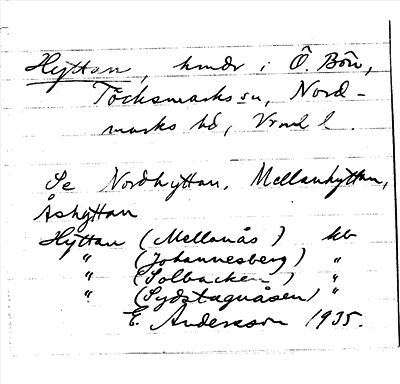 Hyttan, hmdr i Ö. Bön,
Töcksmarks sn, Nord-
marks hd, Vrml l.
Se Nordhyttan, Mellanhyttan,
Åshyttan
Hyttan (Mellanås) hb
" (Johannesberg) "
" (Solbacken) "
" (Sydstaguåsen) "
E. Andersson 1935.